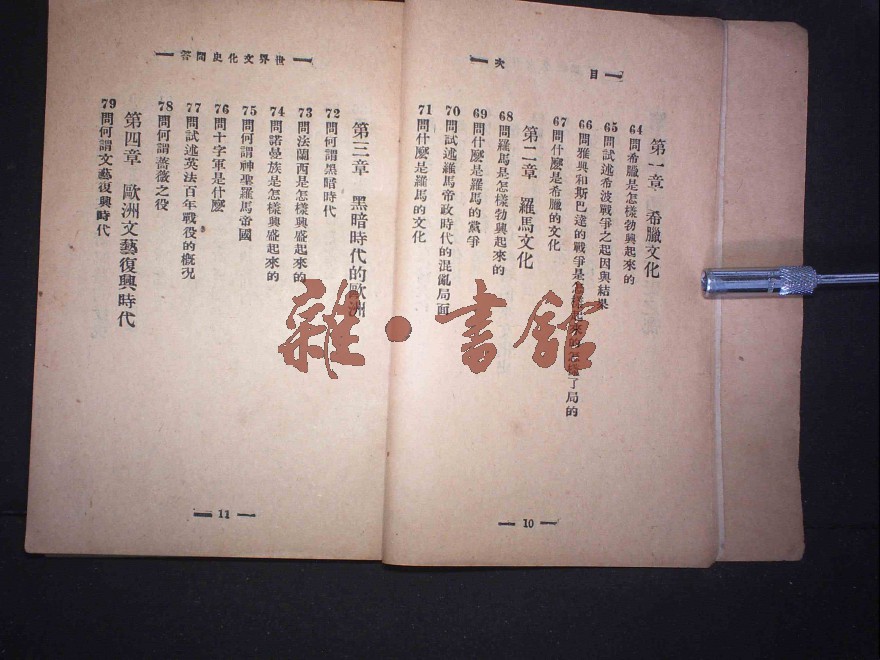 目　次
第一章　希臘文化
64 問希臘是怎樣勃興起來的
65 問試述希波戰爭之起因與結果
66 問雅典和斯巴達的戰爭是怎樣起來的怎樣了局的
67 問什麼是希臘的文化
第二章　羅馬文化
68 問羅馬是怎樣勃興起來的
69 問什麼是羅馬的黨爭
70 問試述羅馬帝政時代的混亂局面
71 問什麼是羅馬的文化
— 10 —
世界文化史問答
第三章　黑暗時代的歐洲
72 問何謂黑暗時代
73 問法蘭西是怎樣興盛起來的
74 問諾曼族是怎樣興盛起來的
75 問何謂神聖羅馬帝國
76 問十字軍是什麼
77 問試述英法百年戰役的概況
78 問何謂薔薇之役
第四章　歐洲文藝復興時代
79 問何謂文藝復興時代
— 11 —
雜·書館